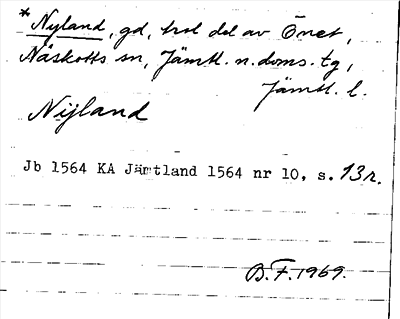 * Nyland, gd, trol del av Önet,
Näskotts sn, Jämtl. n. doms. tg,
Jämtl. l.
Nijland
Jb 1564 KA Jämtland 1564 nr 10, s. 13r.
B.F. 1969.